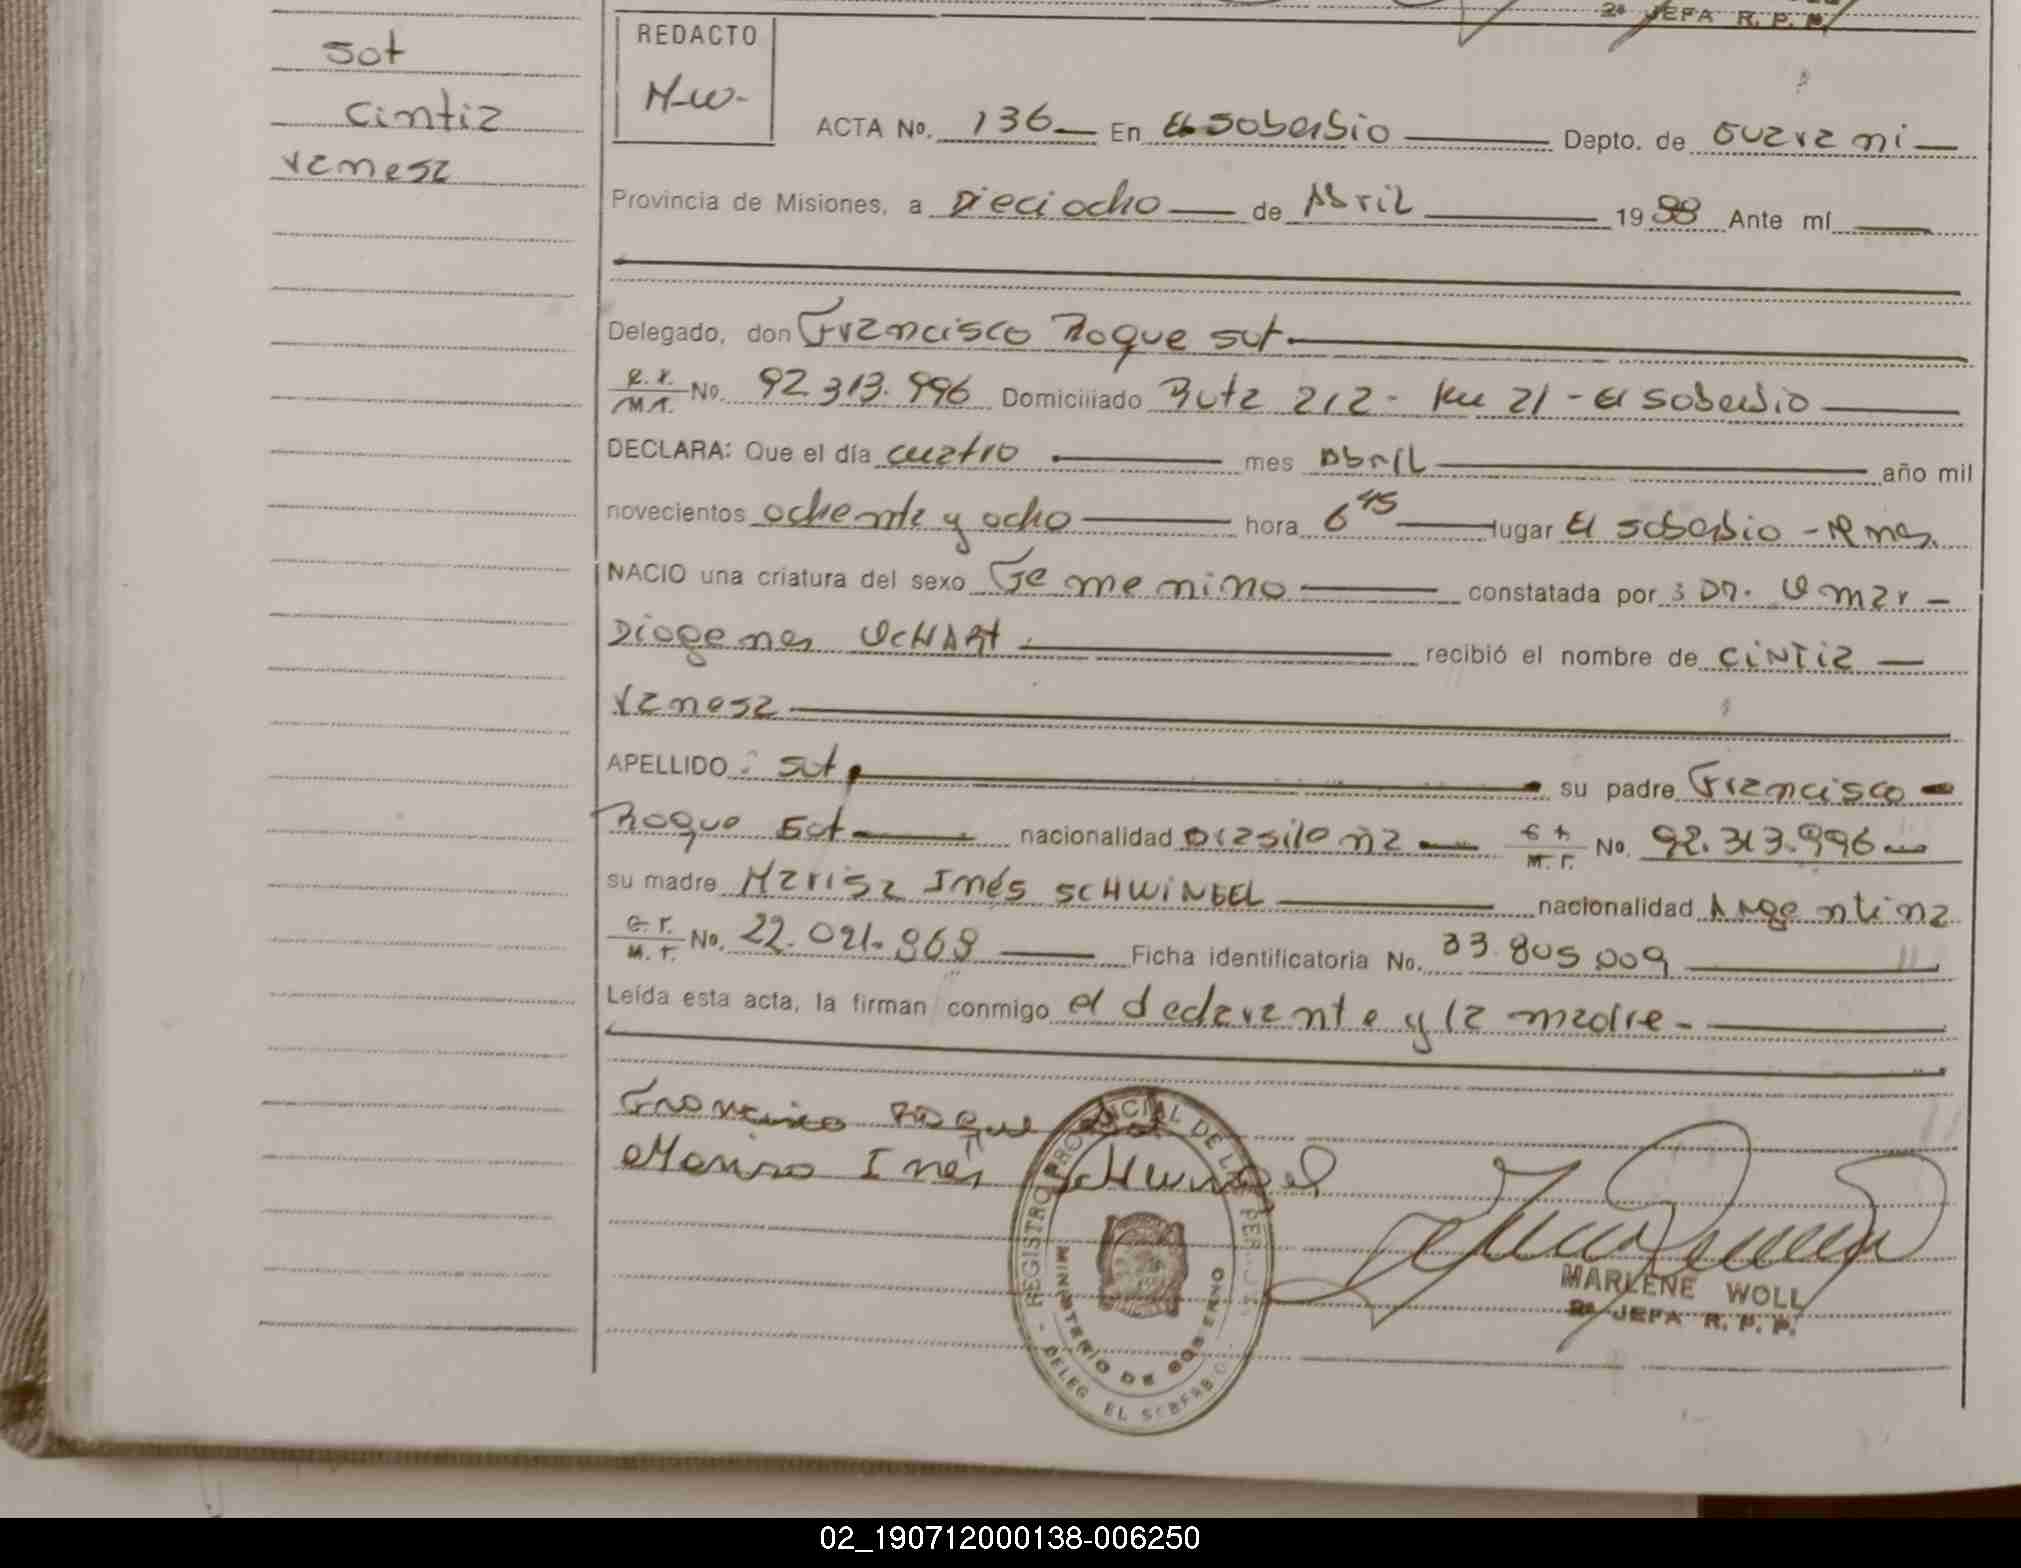 2ª JEFA R. P. P.
Sot
Cintia
Vanesa
REDACTO
M-W-
ACTA No. 136 En El Soberbio Depto. de Guarani
Provincia de Misiones, a Dieciocho de Abril 1988 Ante mí
Delegado, don Francisco Roque Sot
No. 92.313.996 Domiciliado Ruta 212 - Km 21 - El Soberbio
DECLARA: Que el día cuatro mes Abril año mil
novecientos ochenta y ocho hora 6 45 lugar El Soberbio - Mnes.
NACIO una criatura del sexo Femenino constatada por : Dr. Omar
Diogenes OCHART recibió el nombre de CINTia
Vanesa
APELLIDO : Sot su padre Francisco
Roque Sot nacionalidad Brasileña M.I. No. 92.313.996
su madre Marisa Inés SCHWINGEL nacionalidad Argentina
M.I. No. 22.021.868 Ficha identificatoria No. 33.805.009
Leída esta acta, la firman conmigo el declarante y la madre-
Francisco Roque Sot
Marisa Inés Schwingel
REGISTRO PROVINCIAL DE LAS PERSONAS
MINISTERIO DE GOBIERNO
- DELEG. EL SOBERBIO
MARLENE WOLL
2ª JEFA R. P. P.
02_190712000138-006250